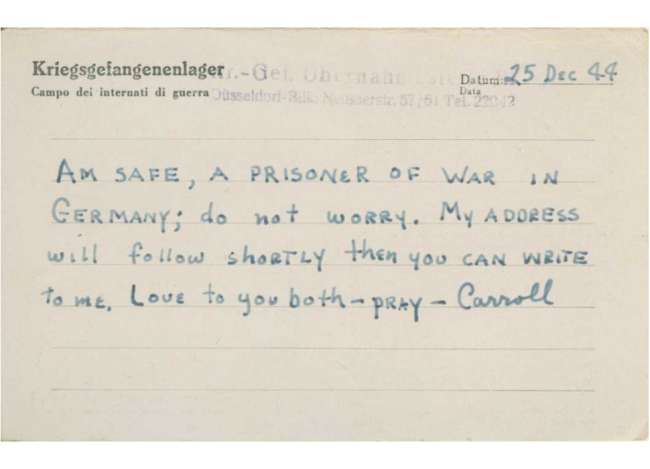 Kriegsgefangenenlager
Campo dei internati di guerra
Datum: 25 Dec 44
Data
Düsseldorf Tel.
AM SAFE, A PRISONER OF WAR IN
GERMANY; do not WORRY. My ADDRESS
will follow shortly then you CAN WRITE
to me. Love to you both - PRAY - Carroll